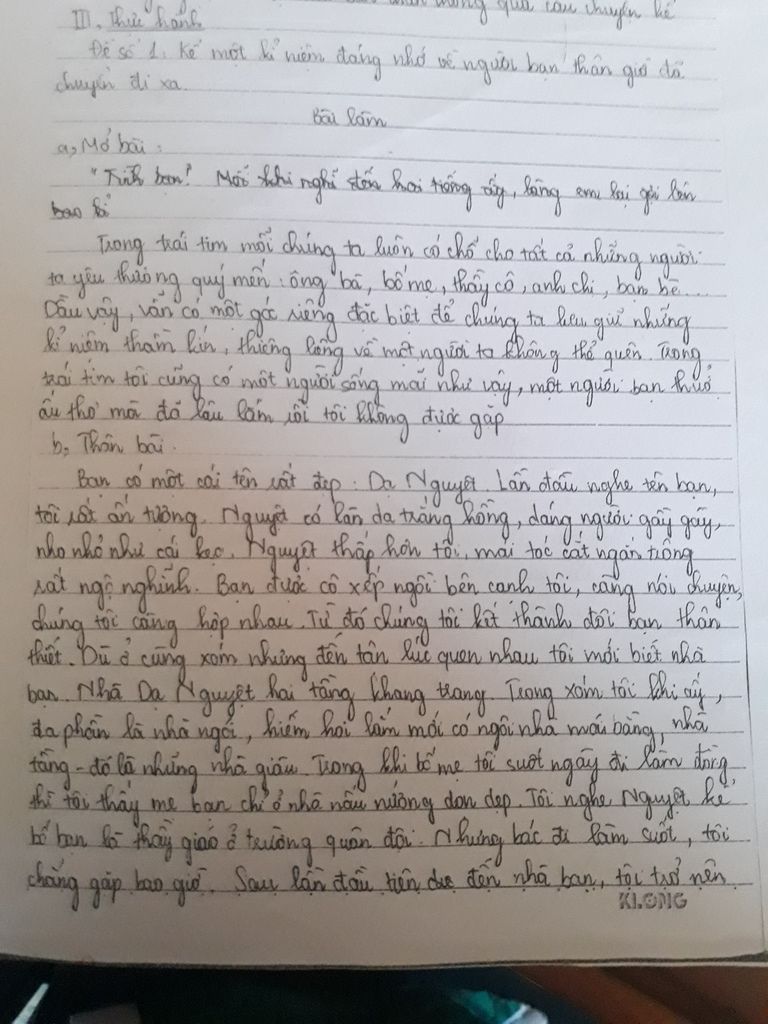 thông qua câu chuyện kể
III. Thực hành
Đề số 1: Kể một kỉ niệm đáng nhớ về người bạn thân giờ đã
chuyển đi xa.
Bài làm
a, Mở bài:
"Tình bạn!" Mỗi khi nghĩ đến hai tiếng ấy, lòng em lại gợi lên
bao kỉ
Trong trái tim mỗi chúng ta luôn có chỗ cho tất cả những người
ta yêu thương quý mến: ông bà, bố mẹ, thầy cô, anh chị, bạn bè...
Dẫu vậy, vẫn có một góc riêng đặc biệt để chúng ta lưu giữ những
kỉ niệm thầm kín, thiêng liêng về một người ta không thể quên. Trong
trái tim tôi cũng có một người sống mãi như vậy, một người bạn thuở
ấu thơ mà đã lâu lắm rồi tôi không được gặp
b, Thân bài.
Bạn có một cái tên rất đẹp: Dạ Nguyệt. Lần đầu nghe tên bạn,
tôi rất ấn tượng. Nguyệt có làn da trắng hồng, dáng người gầy gầy,
nho nhỏ như cái kẹo. Nguyệt thấp hơn tôi, mái tóc cắt ngắn trông
rất ngộ nghĩnh. Bạn được cô xếp ngồi bên cạnh tôi, càng nói chuyện,
chúng tôi càng hợp nhau. Từ đó chúng tôi kết thành đôi bạn thân
thiết. Dù ở cùng xóm nhưng đến tận lúc quen nhau tôi mới biết nhà
bạn. Nhà Dạ Nguyệt hai tầng khang trang. Trong xóm tôi khi ấy,
đa phần là nhà ngói, hiếm hoi lắm mới có ngôi nhà mái bằng, nhà
tầng - đó là những nhà giàu. Trong khi bố mẹ tôi suốt ngày đi làm đồng,
thì tôi thấy mẹ bạn chỉ ở nhà nấu nướng dọn dẹp. Tôi nghe Nguyệt kể
bố bạn là thầy giáo ở trường quân đội. Nhưng bác đi làm suốt, tôi
chẳng gặp bao giờ. Sau lần đầu tiên đến nhà bạn, tôi trở nên
KLONG